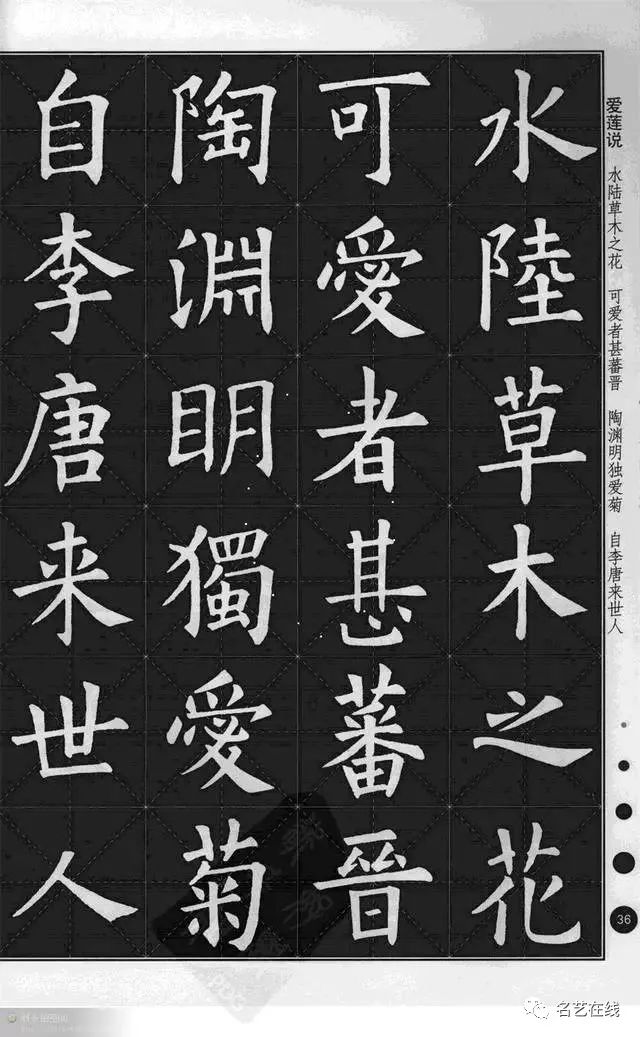 水陸草木之花
可愛者甚蕃晉
陶淵明獨愛菊
自李唐来世人
爱莲说 水陆草木之花 可爱者甚蕃晋 陶渊明独爱菊 自李唐来世人
36
名艺在线